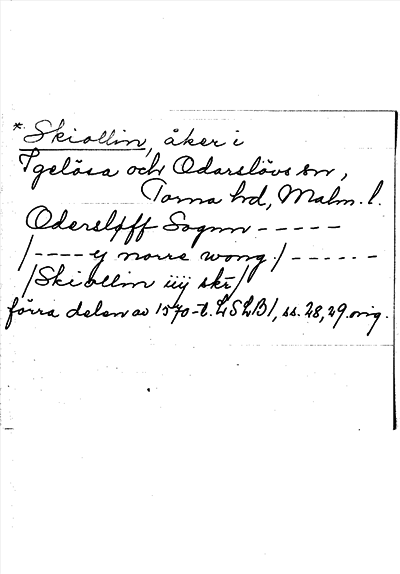 * Skiollin, åker i
Igelösa och Odarslövs sn,
Torna hd, Malm. l.
Odersløff Sognn - - - - -
/ - - - - y norre wong / - - - - - -
/ Skiollin iiij skr /
förra delen av 1570-t. LSLB1, ss. 28, 29. orig.